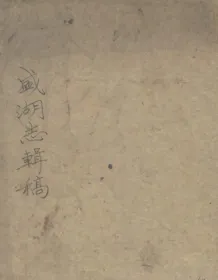 盛湖志輯稿